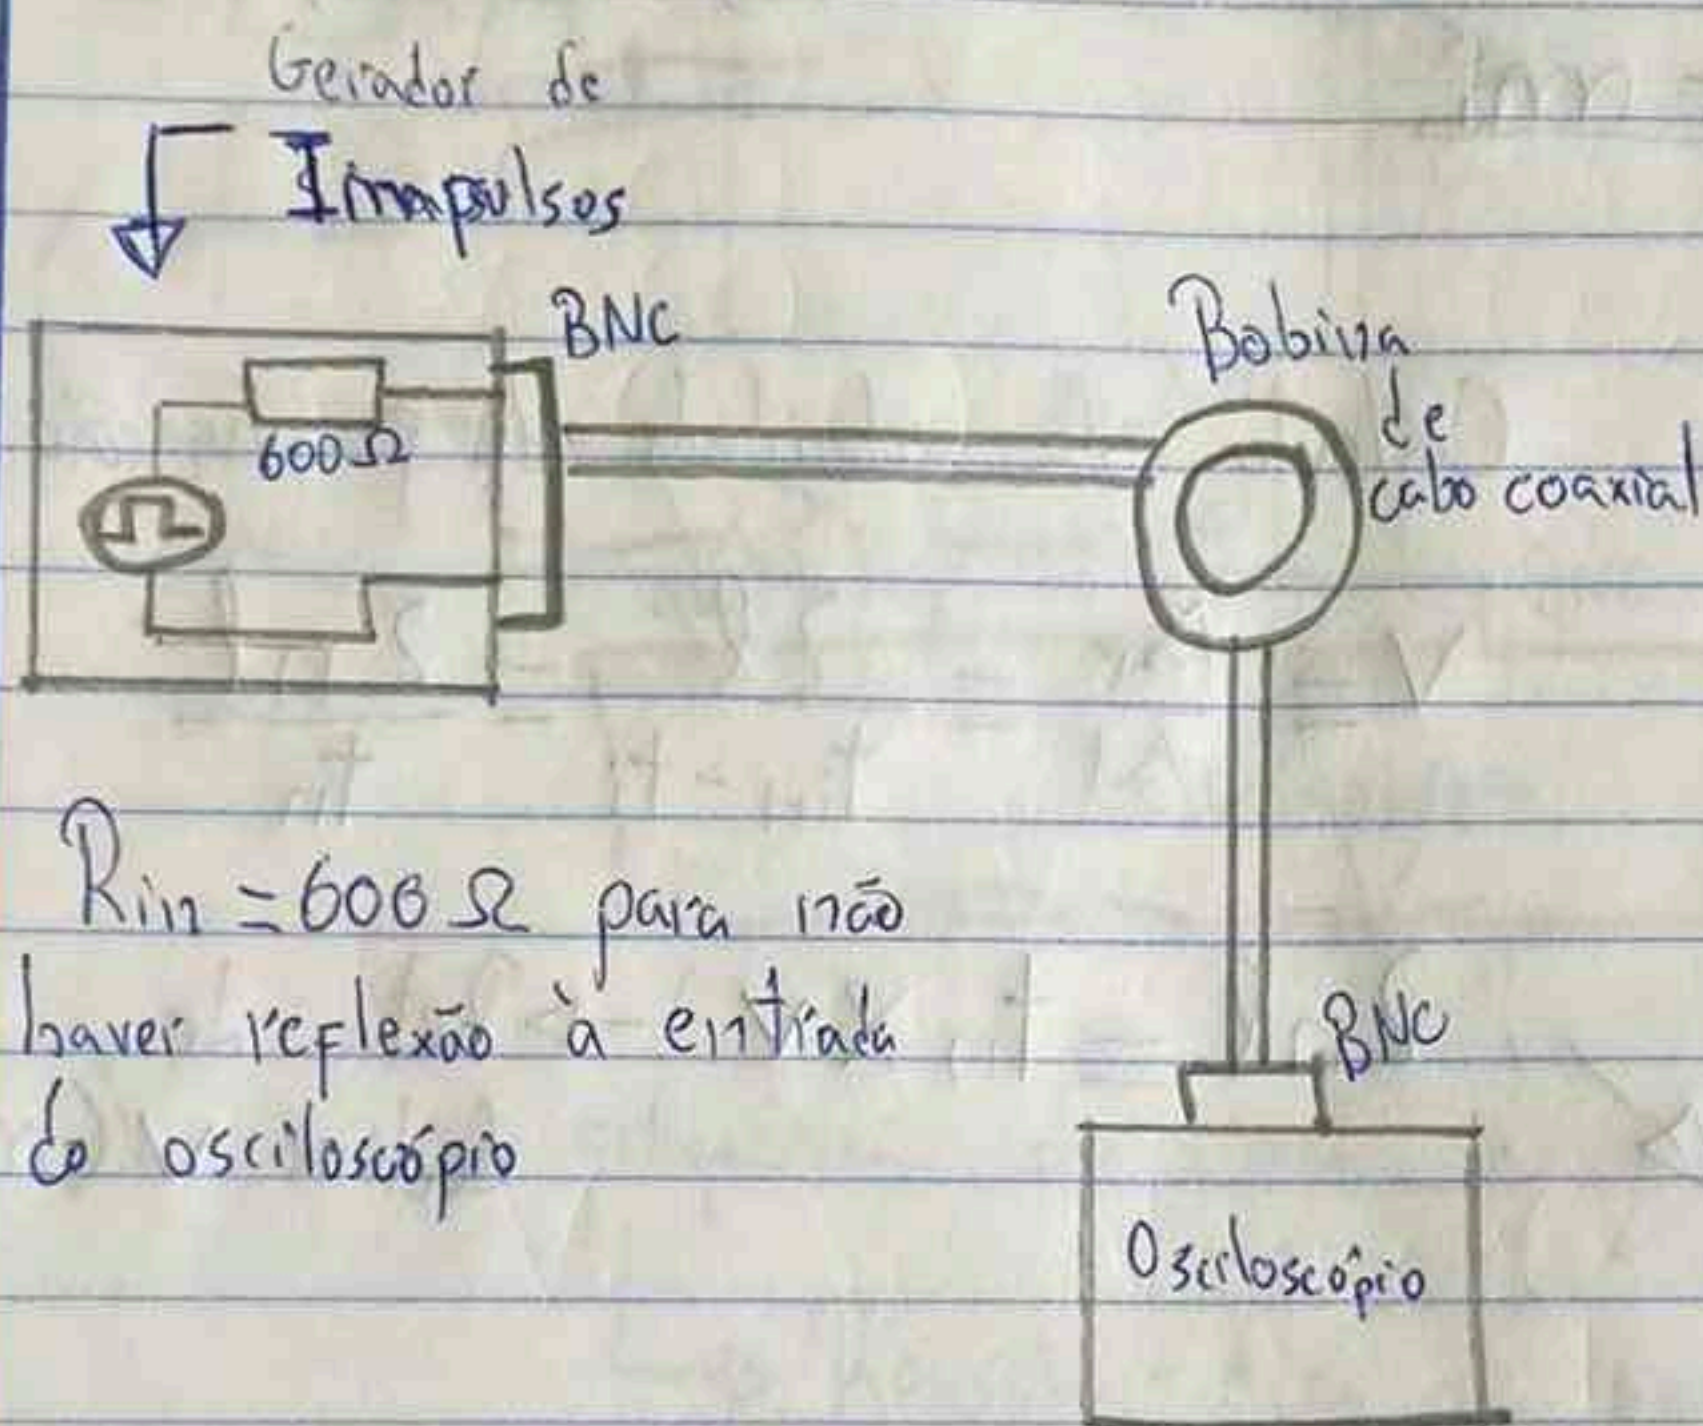 Gerador de
Impulsos
BNC
600Ω
Bobina
de
cabo coaxial
Rin = 600 Ω para não
haver reflexão à entrada
do osciloscópio
BNC
Osciloscópio